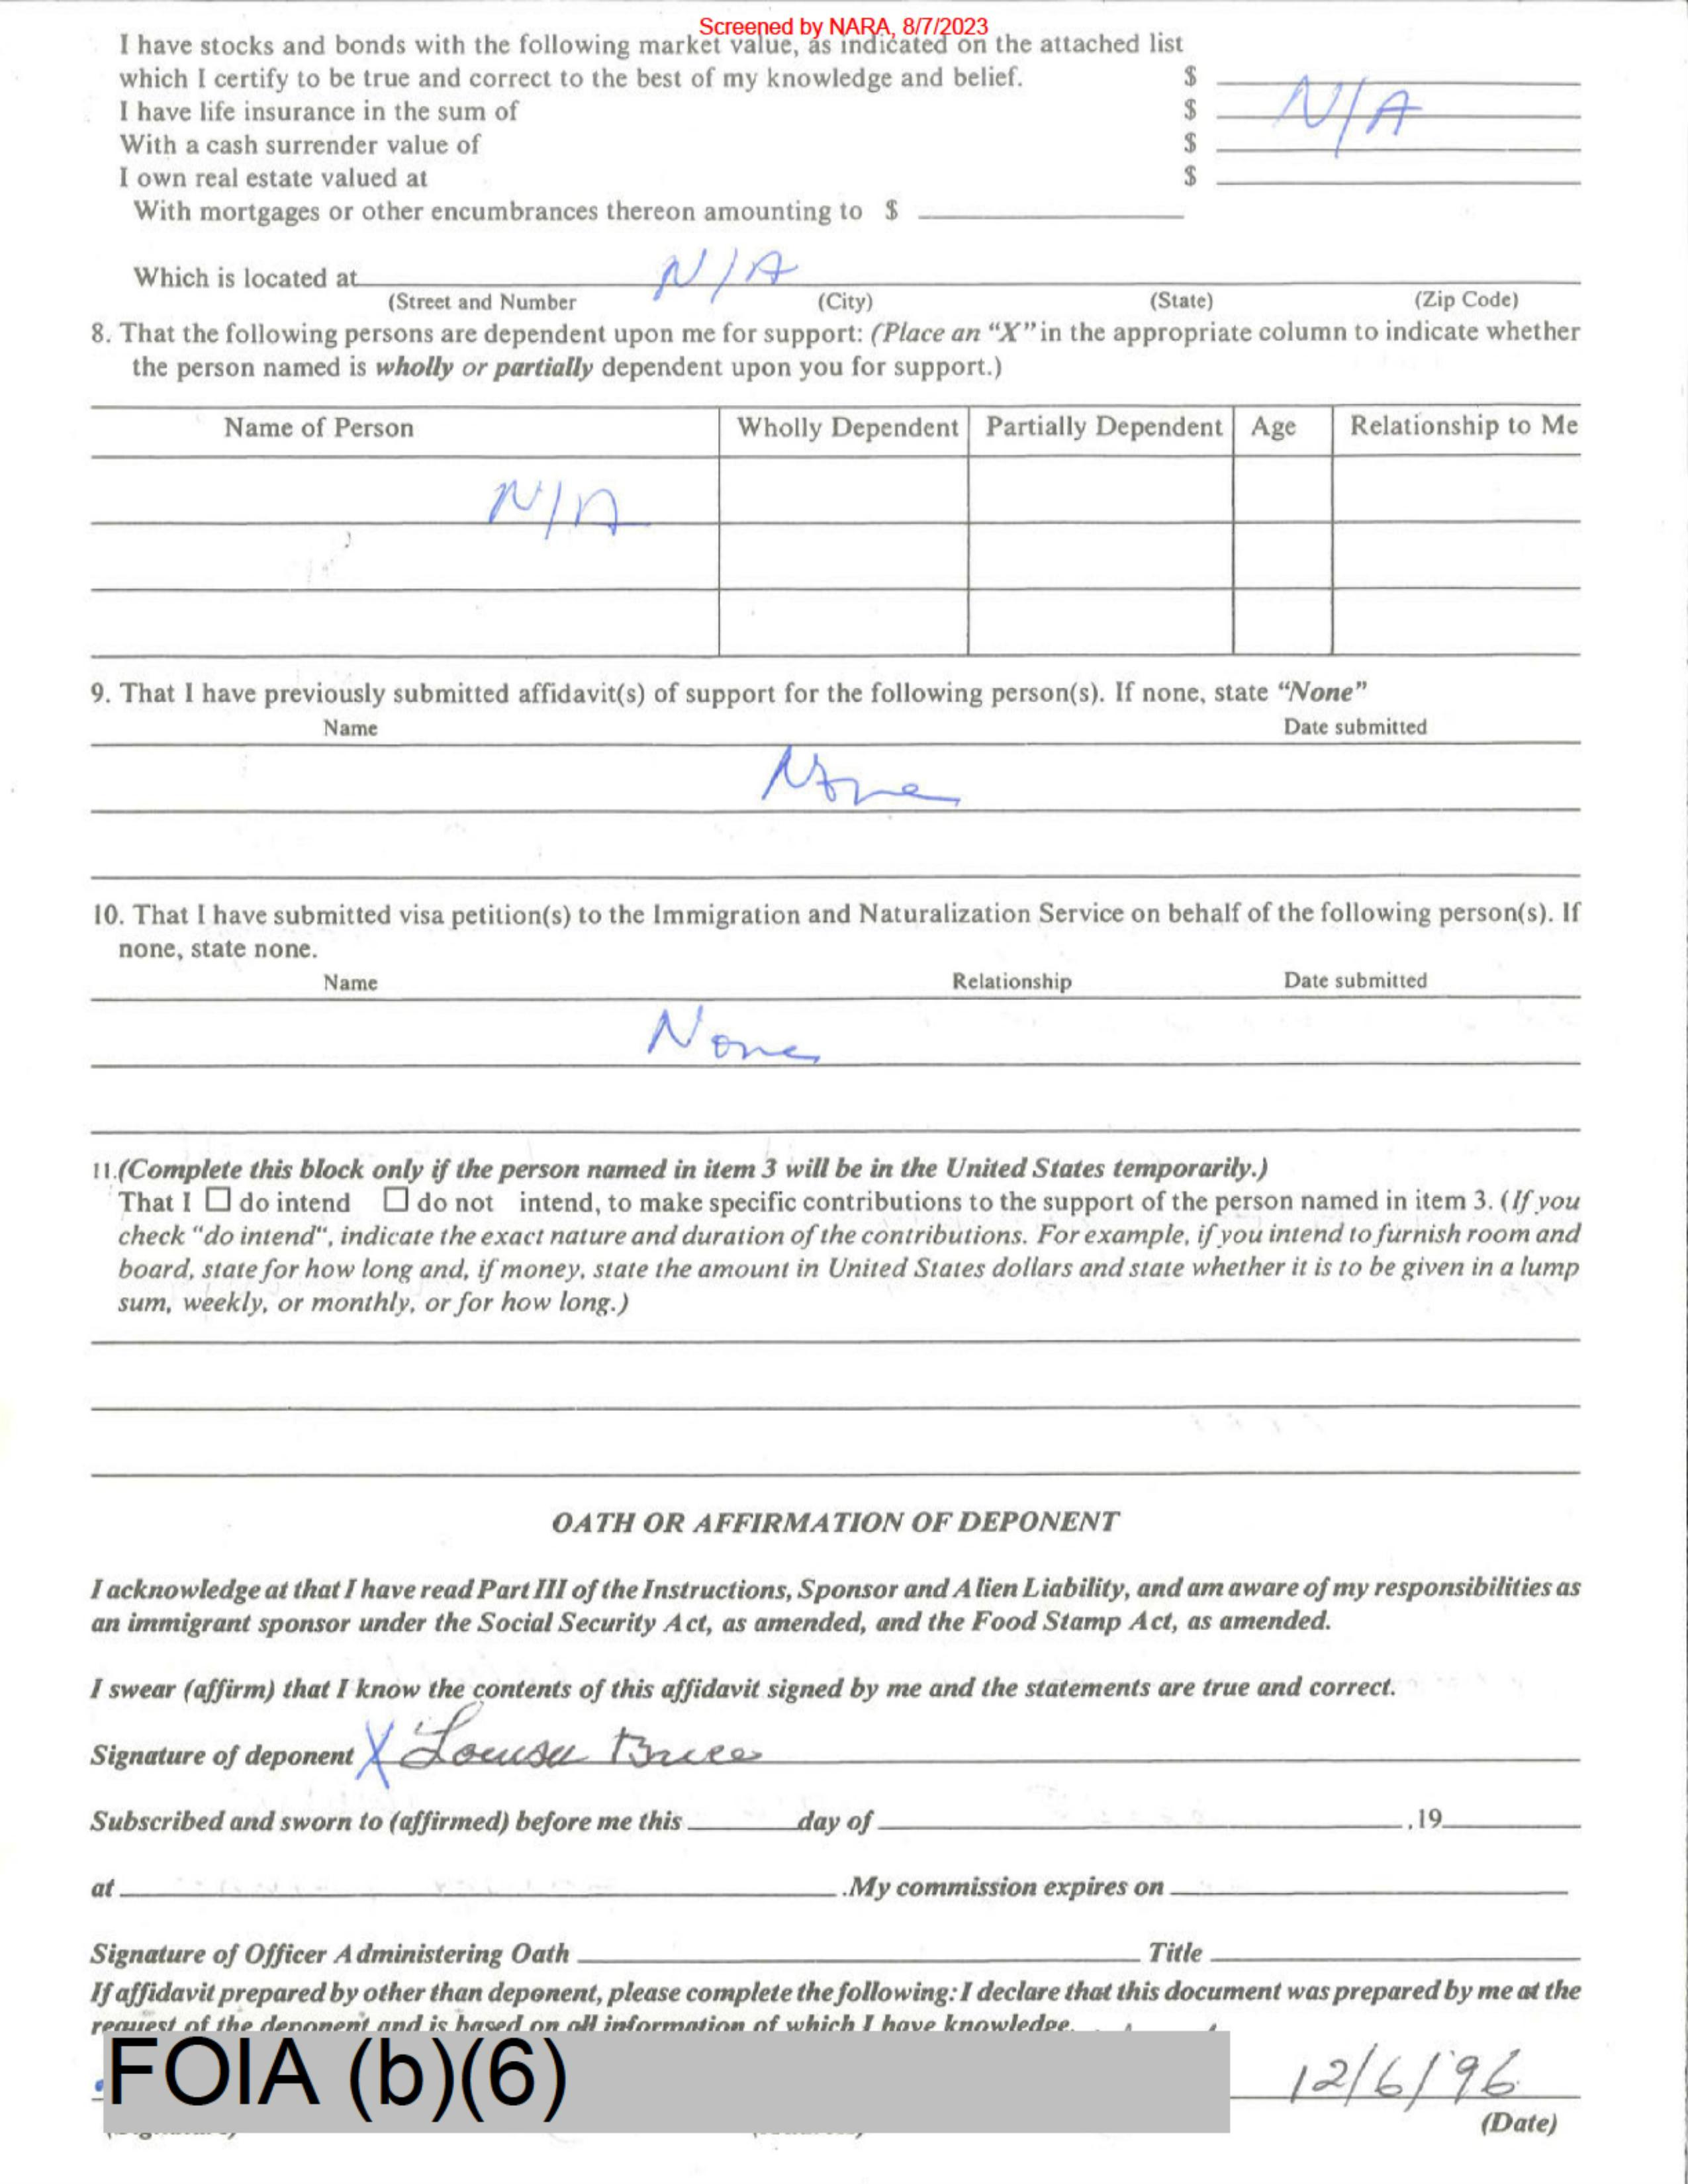 Screened by NARA, 8/7/2023
I have stocks and bonds with the following market value, as indicated on the attached list
which I certify to be true and correct to the best of my knowledge and belief. $
I have life insurance in the sum of $ N/A
With a cash surrender value of $
I own real estate valued at $
With mortgages or other encumbrances thereon amounting to $
Which is located at N/A
(Street and Number (City) (State) (Zip Code)
8. That the following persons are dependent upon me for support: (Place an “X” in the appropriate column to indicate whether
the person named is wholly or partially dependent upon you for support.)
Name of Person Wholly Dependent Partially Dependent Age Relationship to Me
N/A
9. That I have previously submitted affidavit(s) of support for the following person(s). If none, state “None”
Name Date submitted
None
10. That I have submitted visa petition(s) to the Immigration and Naturalization Service on behalf of the following person(s). If
none, state none.
Name Relationship Date submitted
None
11.(Complete this block only if the person named in item 3 will be in the United States temporarily.)
That I ☐ do intend ☐ do not intend, to make specific contributions to the support of the person named in item 3. (If you
check “do intend“, indicate the exact nature and duration of the contributions. For example, if you intend to furnish room and
board, state for how long and, if money, state the amount in United States dollars and state whether it is to be given in a lump
sum, weekly, or monthly, or for how long.)
OATH OR AFFIRMATION OF DEPONENT
I acknowledge at that I have read Part III of the Instructions, Sponsor and Alien Liability, and am aware of my responsibilities as
an immigrant sponsor under the Social Security Act, as amended, and the Food Stamp Act, as amended.
I swear (affirm) that I know the contents of this affidavit signed by me and the statements are true and correct.
Signature of deponent X Louisa
Subscribed and sworn to (affirmed) before me this day of ,19
at .My commission expires on
Signature of Officer Administering Oath Title
If affidavit prepared by other than deponent, please complete the following: I declare that this document was prepared by me at the
request of the deponent and is based on all information of which I have knowledge.
FOIA (b)(6) 12/6/96
(Date)